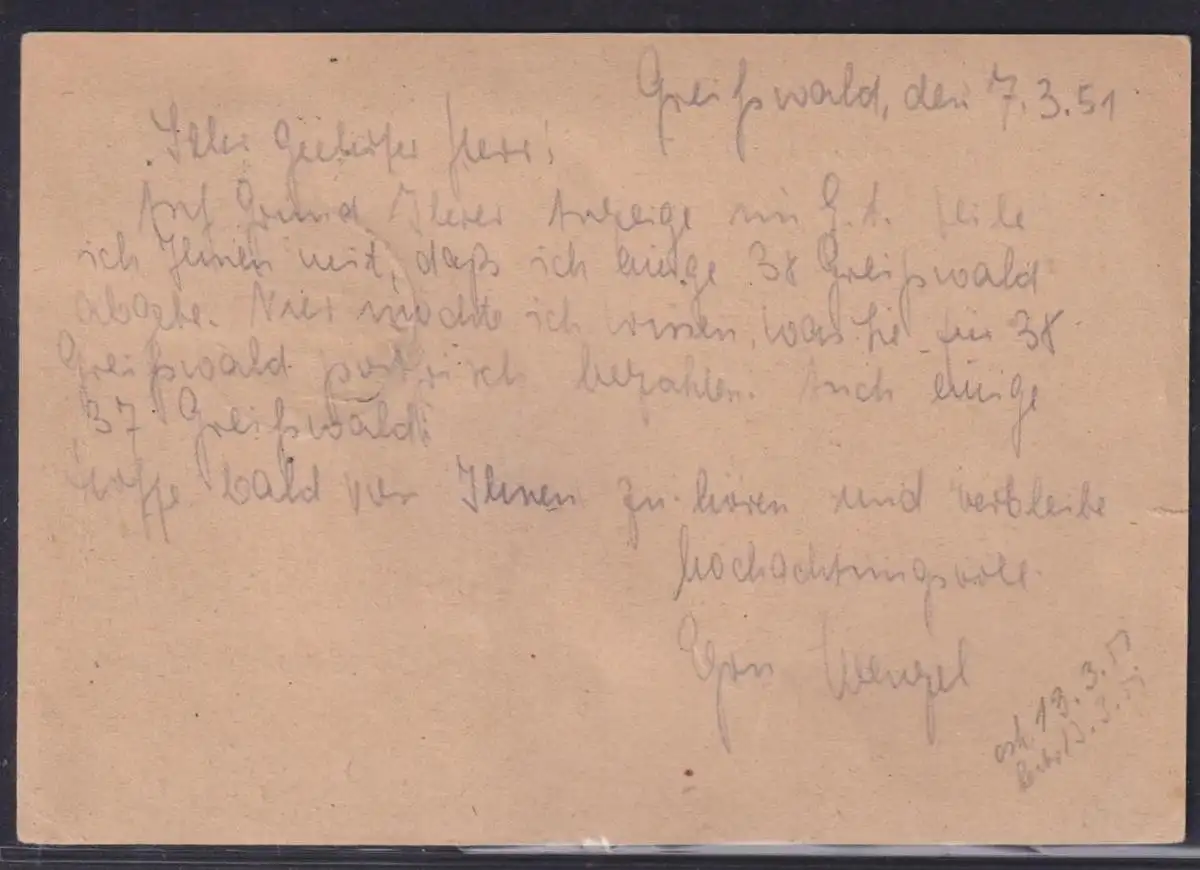 Greifswald, den 7.3.51
Sehr geehrter Herr!
Auf Grund Ihrer Anzeige im teile
ich Ihnen mit, daß ich einige 38 Greifswald
abgebe. Nur möchte ich wissen, was Sie für 38
Greifswald postfrisch bezahlen. Auch einige
37 Greifswald.
Hoffe bald von Ihnen zu hören und verbleibe
hochachtungsvoll
Egon
13.3.51